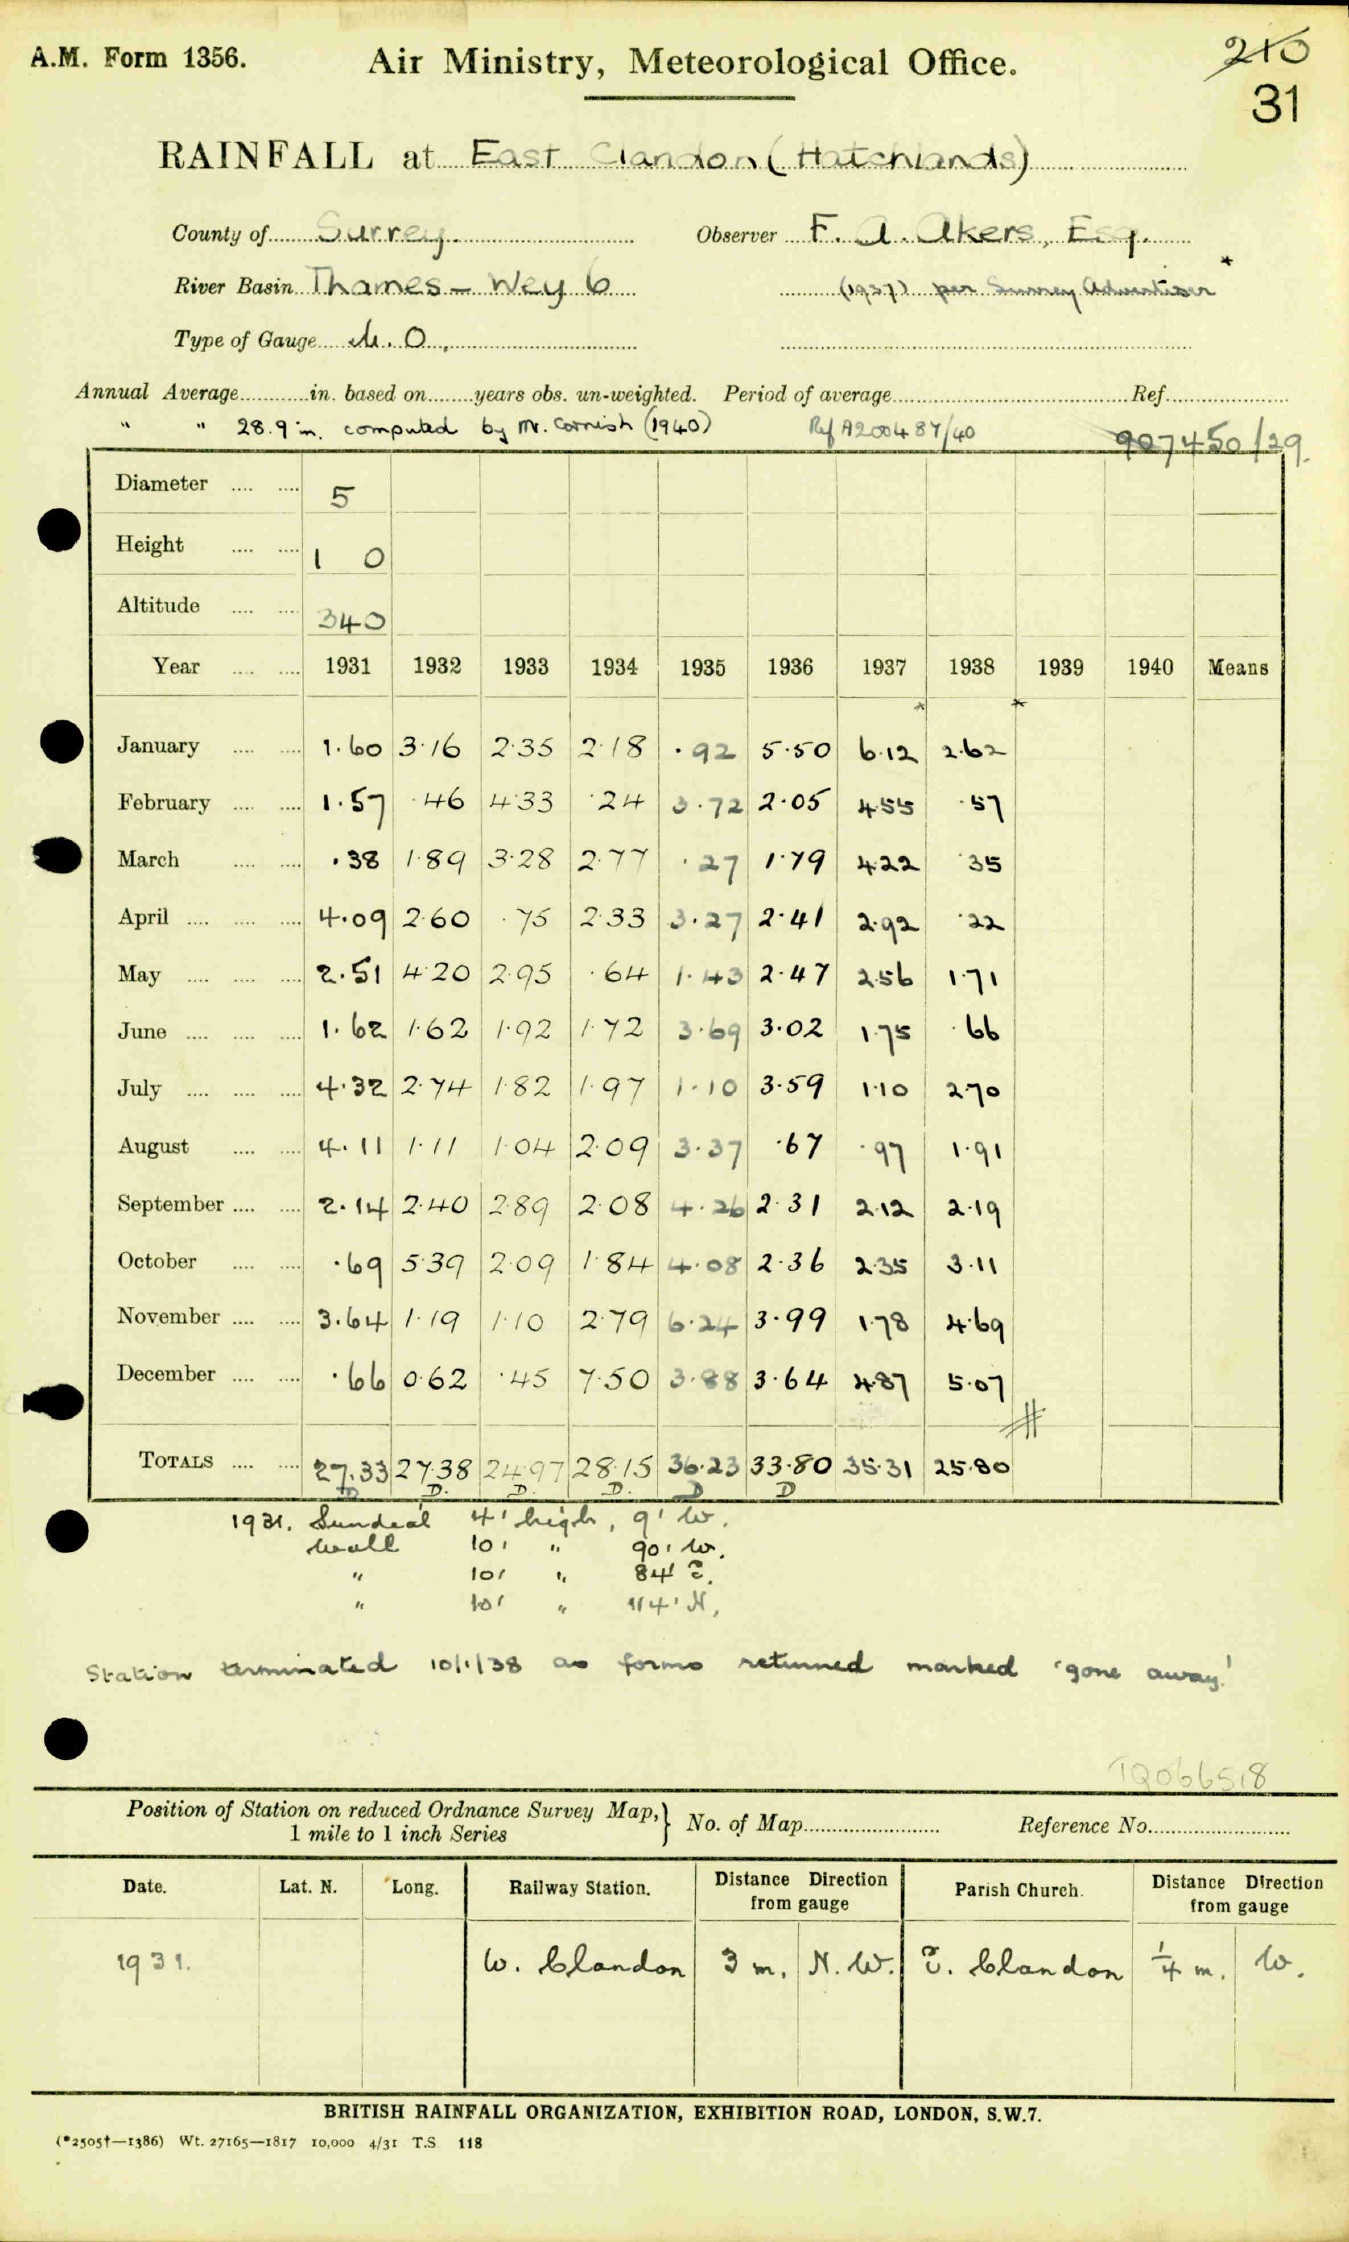 A.M. Form 1356. Air Ministry, Meteorological Office. 210
31
RAINFALL at East Clandon (Hatchlands)
County of Surrey. Observer F. A. Akers, Esq.
River Basin Thames - Wey 6 (1937) per Surrey Advertiser *
Type of Gauge M.O.
Annual Average in. based on years obs. un-weighted. Period of average Ref.
" " 28.9 in. computed by Mr. Cornish (1940) Ref A200487/40 907450/29.
Diameter 5
Height 1 0
Altitude 340
Year 1931 1932 1933 1934 1935 1936 1937 1938 1939 1940 Means
* *
January 1.60 3.16 2.35 2.18 .92 5.50 6.12 2.62
February 1.57 .46 4.33 .24 3.72 2.05 4.55 .57
March .38 1.89 3.28 2.77 .27 1.79 4.22 .35
April 4.09 2.60 .75 2.33 3.27 2.41 2.92 .22
May 2.51 4.20 2.95 .64 1.43 2.47 2.56 1.71
June 1.62 1.62 1.92 1.72 3.69 3.02 1.75 .66
July 4.32 2.74 1.82 1.97 1.10 3.59 1.10 2.70
August 4.11 1.11 1.04 2.09 3.37 .67 .97 1.91
September 2.14 2.40 2.89 2.08 4.26 2.31 2.12 2.19
October .69 5.39 2.09 1.84 4.08 2.36 2.35 3.11
November 3.64 1.19 1.10 2.79 6.24 3.99 1.78 4.69
December .66 0.62 .45 7.50 3.88 3.64 4.87 5.07
TOTALS 27.33 27.38 24.97 28.15 36.23 33.80 35.31 25.80
D D. D. D. D D
1931. Sundial 4' high, 9' W.
Wall 10' " 90' W.
" 10' " 84' E.
" 10' " 114' N.
Station terminated 10/1/38 as forms returned marked 'gone away'
TQ066518
Position of Station on reduced Ordnance Survey Map, 1 mile to 1 inch Series } No. of Map Reference No.
Date. Lat. N. Long. Railway Station. Distance Direction from gauge Parish Church. Distance Direction from gauge
1931. W. Clandon 3 m. N.W. E. Clandon 1/4 m. W.
BRITISH RAINFALL ORGANIZATION, EXHIBITION ROAD, LONDON, S.W.7.
(*2505†—1386) Wt. 27165—1817 10,000 4/31 T.S 118